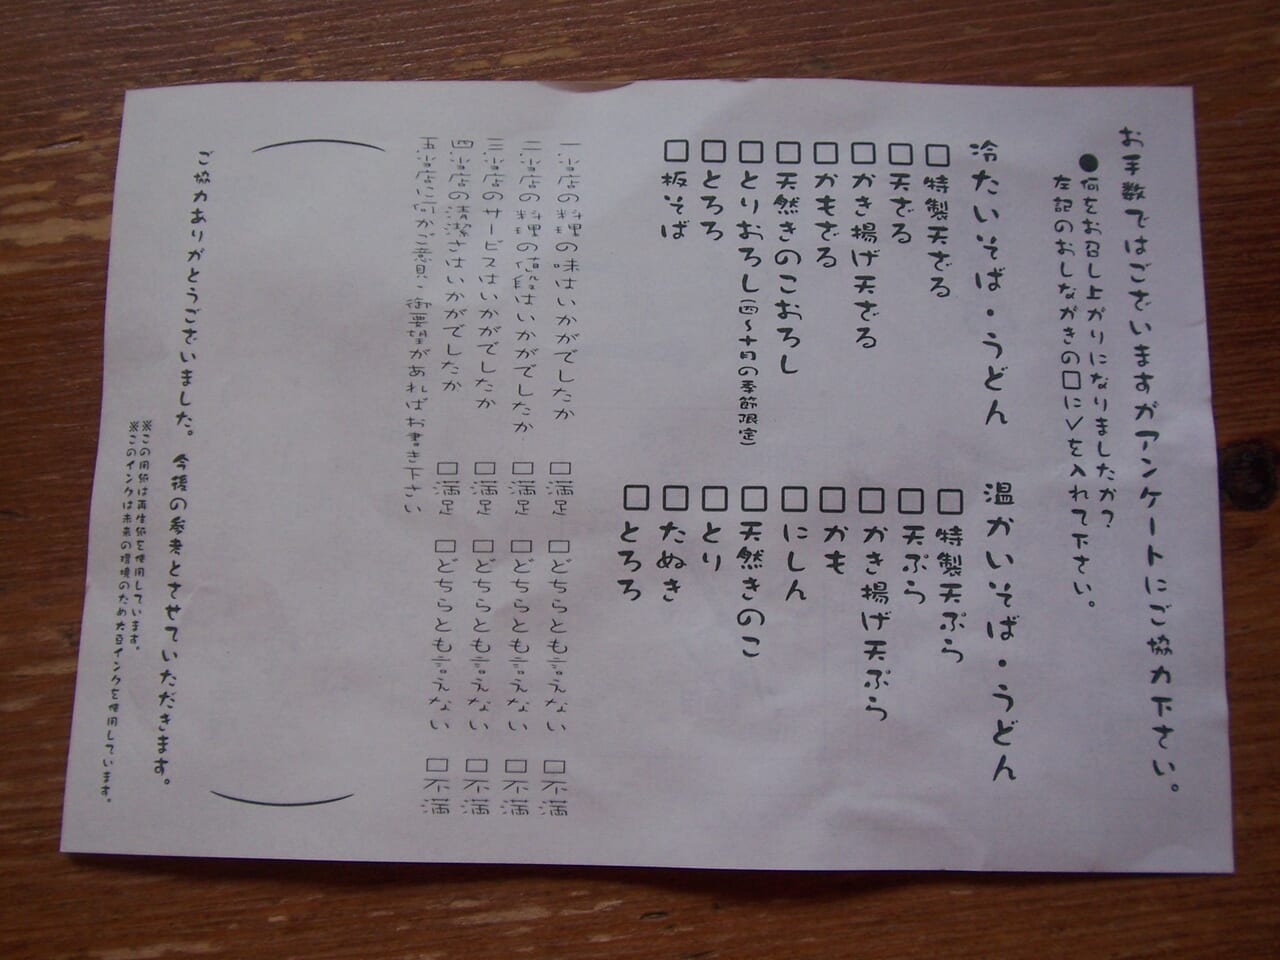 お手数ではございますがアンケートにご協力下さい。
●何をお召し上がりになりましたか？
左記のおしながきの□に✓を入れて下さい。
冷たいそば・うどん
□特製天ざる
□天ざる
□かき揚げ天ざる
□かもざる
□天然きのこおろし
□とりおろし（四～十月の季節限定）
□とろろ
□板そば
温かいそば・うどん
□特製天ぷら
□天ぷら
□かき揚げ天ぷら
□かも
□にしん
□天然きのこ
□とり
□たぬき
□とろろ
一 当店の料理の味はいかがでしたか □満足 □どちらとも言えない □不満
二 当店の料理の値段はいかがでしたか □満足 □どちらとも言えない □不満
三 当店のサービスはいかがでしたか □満足 □どちらとも言えない □不満
四 当店の清潔さはいかがでしたか □満足 □どちらとも言えない □不満
五 当店に何かご意見・御要望があればお書き下さい
ご協力ありがとうございました。今後の参考とさせていただきます。
※この用紙は再生紙を使用しています。
※このインクは未来の環境のため大豆インクを使用しています。